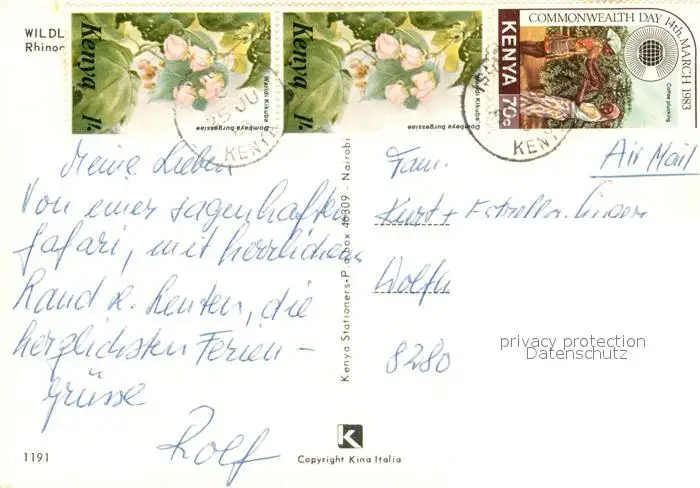 WILDL
Rhinoc
Kenya 1.
Waridi Kikuba
Dombeya burgessiae
Kenya 1.
Waridi Kikuba
Dombeya burgessiae
COMMONWEALTH DAY 14th MARCH 1983
KENYA 70c
Coffee plucking
KENYA
KENYA
Meine Lieben
Von einer sagenhaften
Safari, mit herrlichem
Land u. Leuten, die
herzlichsten Ferien-
grüsse
Rolf
1191
Kenya Stationers-P.o box 46309 - Nairobi
Copyright Kina Italia
Air Mail
Fam.
Kurt +
8280
privacy protection
Datenschutz